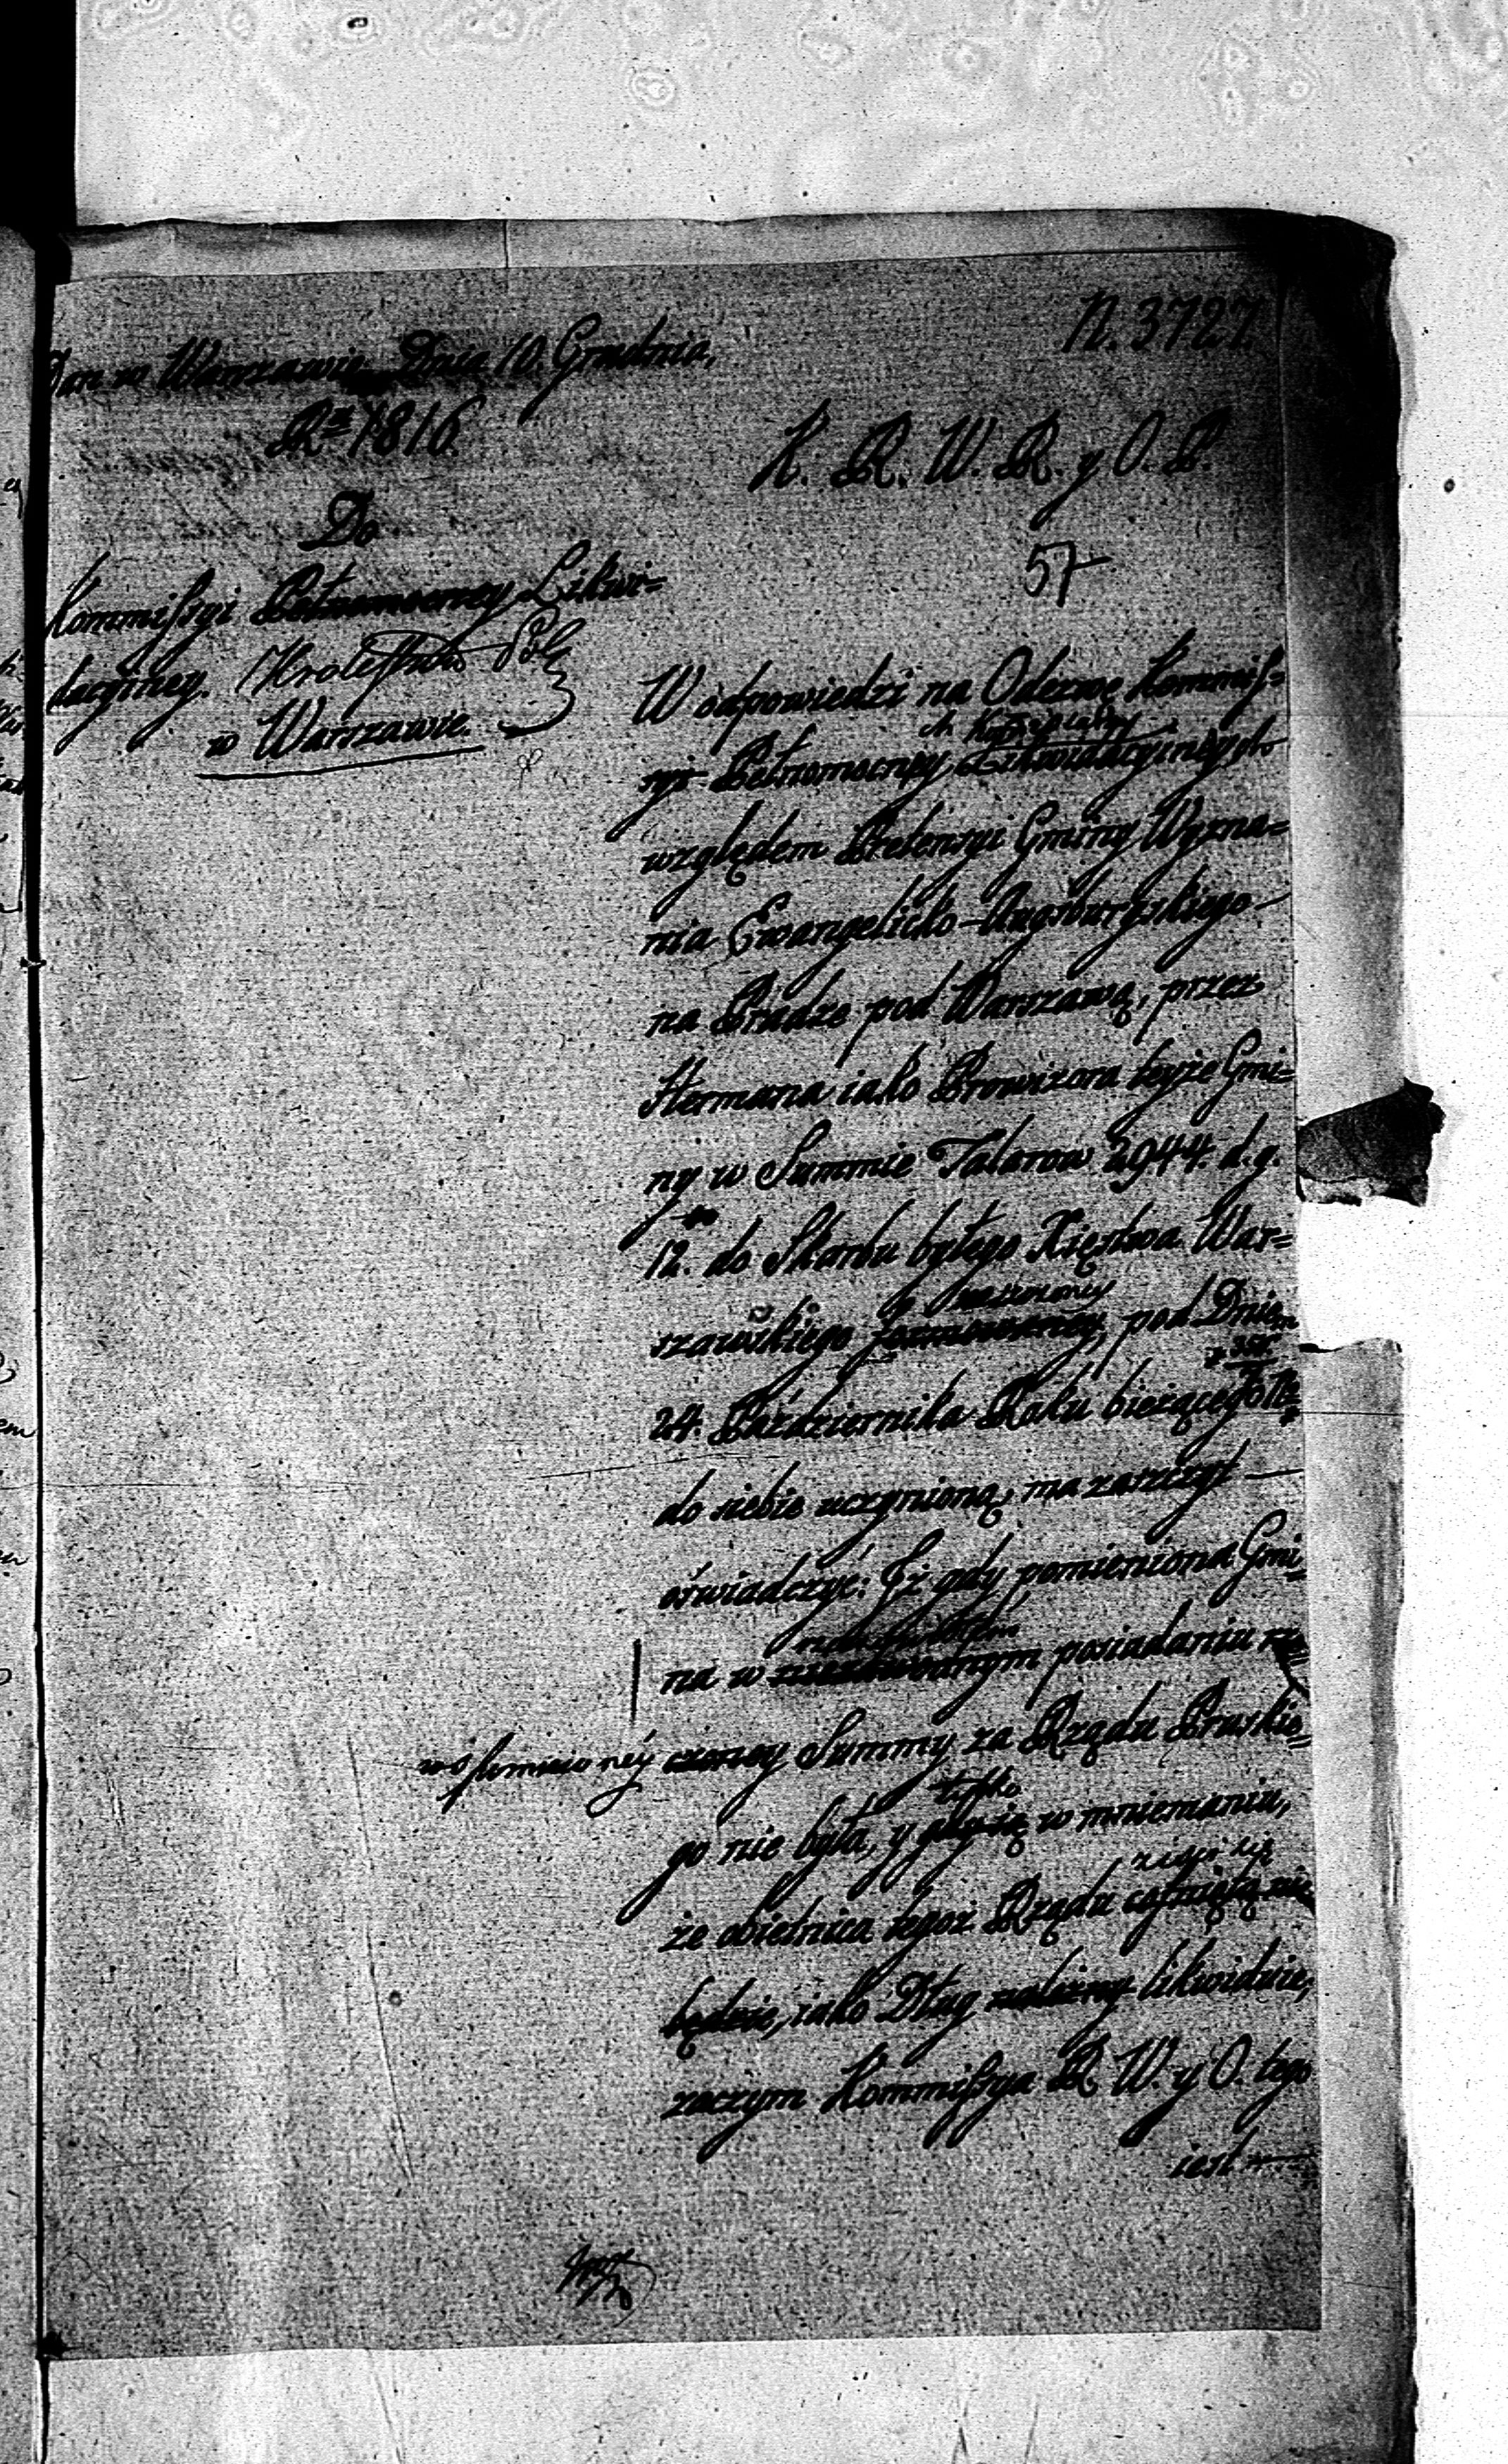 N. 3727.
Dan w Warszawie Dnia 10. Grudnia,
Rz 1816.
K. R. W. R. y O. P.
Do
57
Kommissyi Pełnomocney Likwi=
dacyiney. Krolestwa Pol
w Warszawie.
W odpowiedzi na Odezwę Kommis=
syi Pełnomocney Likwidacyiney
względem Pretensyi Gminy Wyzna=
nia Ewangelicko-Augsburgskiego
na Pradze pod Warszawą, przez
Hermana iako Prowizora teyże Gmi=
ny w Summie Talarow 2944. d. g.
12. do Skarbu byłego Xięstwa War=
szawskiego formowaney, pod Dniem
24. Października Roku bieżącego
do siebie uczynioną, ma zaszczyt
oświadczyć: Iż gdy pomieniona Gmi=
na w posiadaniu
wspomnionéy Summy za Rządu Pruskie=
tylko
go nie była, y w mniemaniu,
ziści się
że obietnica tegoż Rządu cofniętą nie
będzie, iako Dług należny likwiduie,
zaczym Kommissya R. W. y O. tego
iest